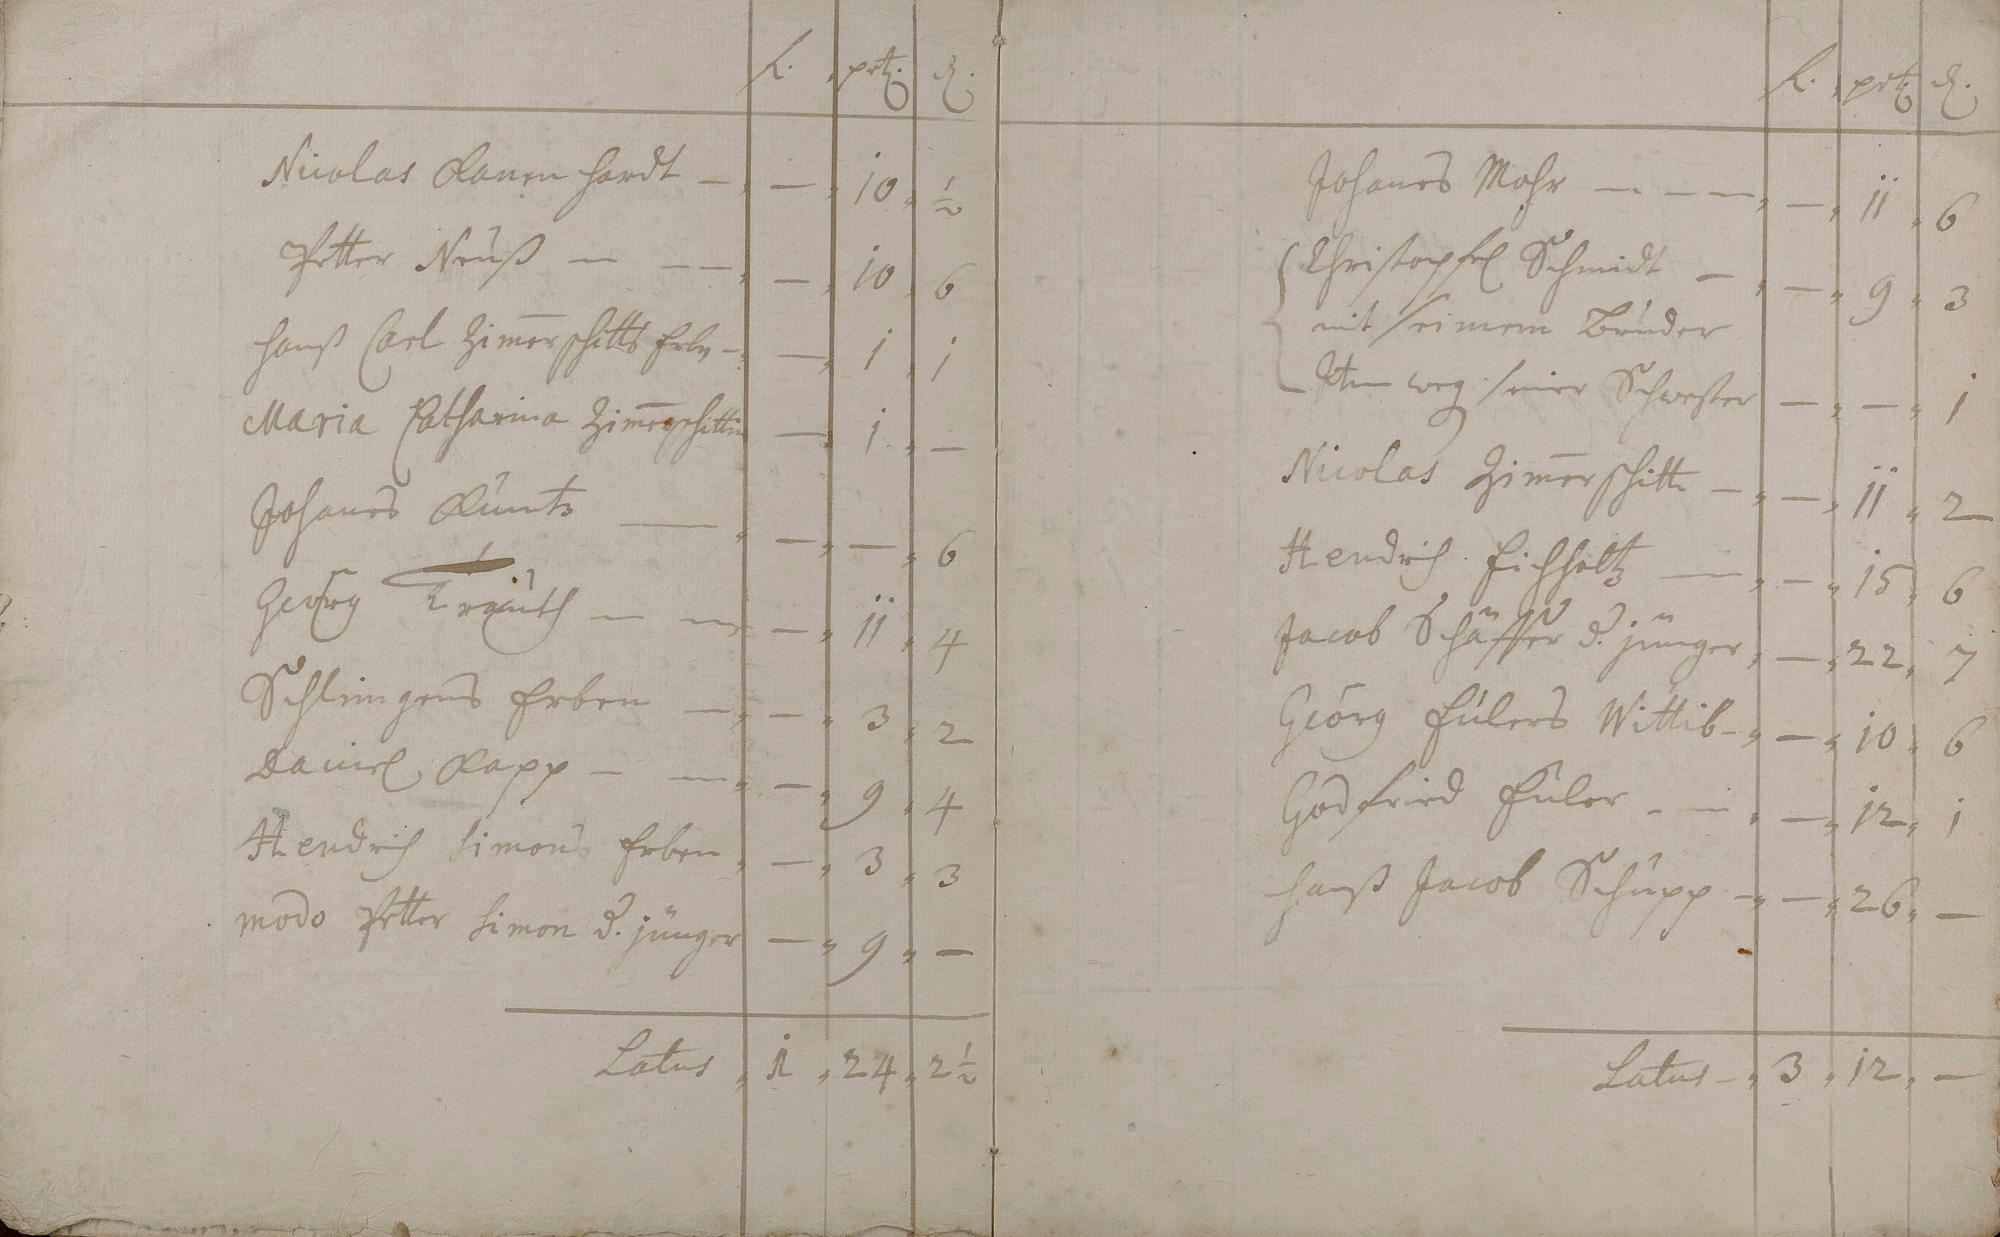 fl. ptz. d.
Nicolas Ranenhardt — — 10 ½
Petter Neuß — — — — 10 6
Hanß Carl Zim̄erschitts Erbn — — 1 1
Maria Catharina Zim̄erschittin — 1 —
Johanes Kuntz — — — 6
GeorgTräuth — — — 11 4
Schlingens Erben — — 3 2
Daniel Rapp — — — 9 4
Hendrich Simons Erben — 3 3
modo Petter Simon d. jünger — 9 —
Latus 1 24 2½
fl. ptz d.
Johanes Mohr — — — — 11 6
Christopfel Schmidt — — 9 3
mit seinem Bruder
Itm weg seiner Schwester — — 1
Nicolas Zim̄erschitt — — 11 2
Hendrich Eichholtz — — 15 6
Jacob Schäffer d. jünger — 22 7
Georg Eulers Wittib — — 10 6
Godfried Euler — — — 12 1
Hanß Jacob Schupp — — 26 —
Latus — 3 12 —